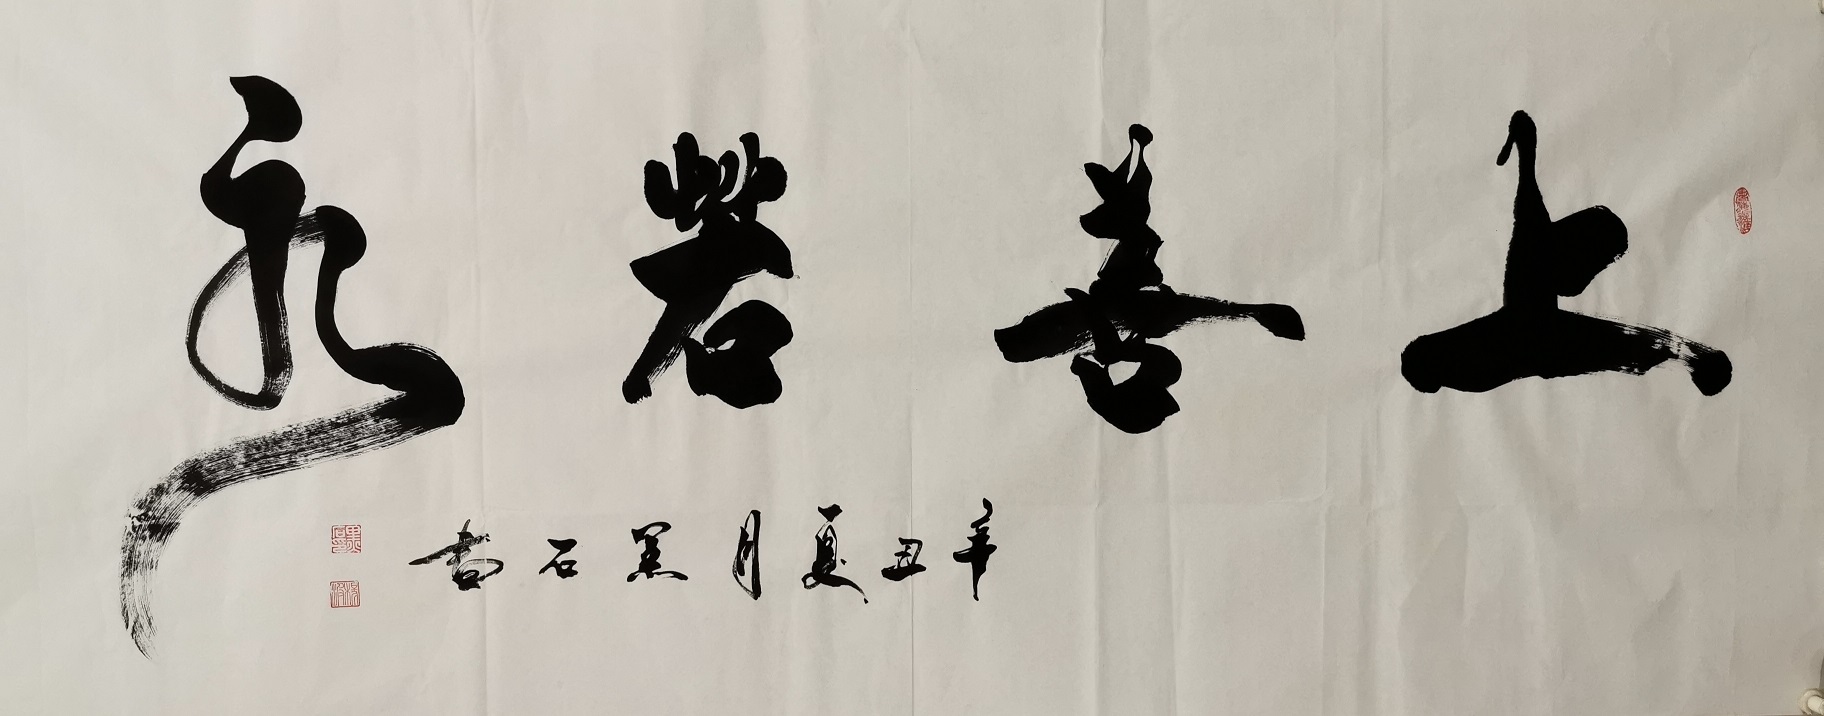 上善若水
辛丑夏月黑石書